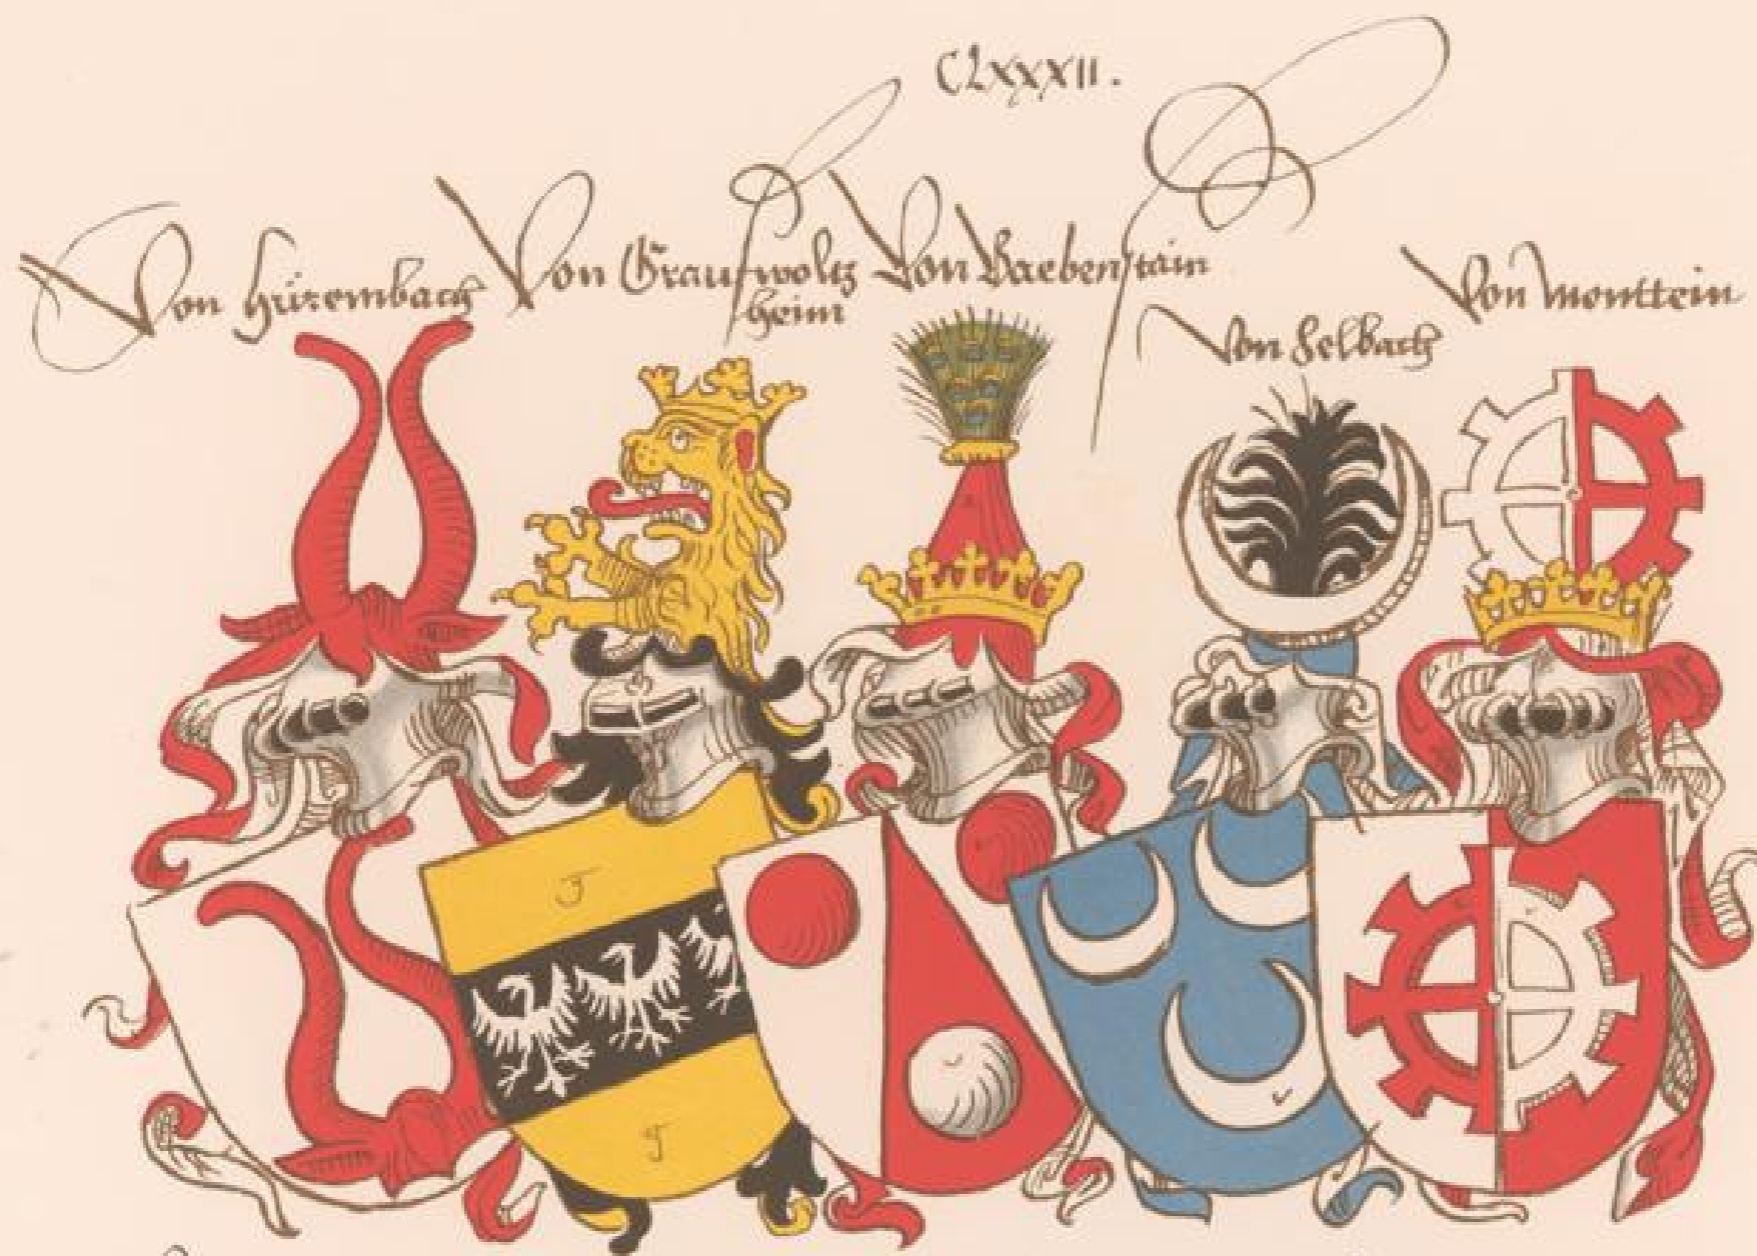 CLXXXII.
Von Hürembach
Von Grauswoltz
heim
Von Raebenstain
Von Selbach
Von Monttein